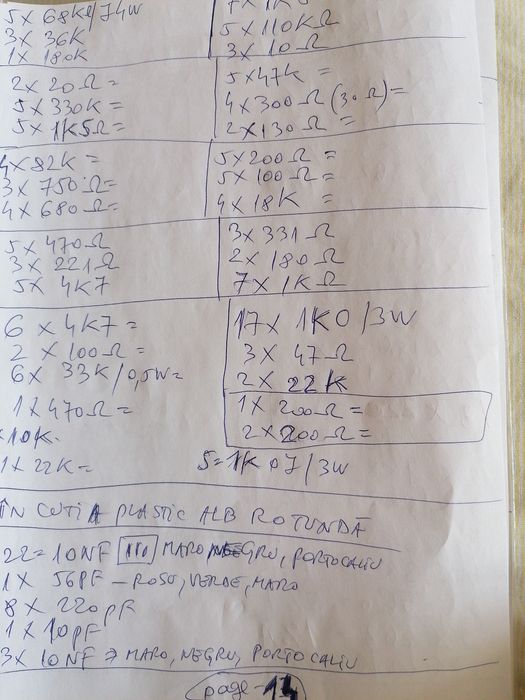 5 X 68K0/J4W
3 X 36K
1 X 180K
7 X 1K5
5 X 110KΩ
3 X 10Ω
2 X 20Ω =
5 X 330K =
5 X 1K5Ω =
5 X 47K =
4 X 300Ω (30Ω) =
2 X 130Ω =
4 X 82K =
3 X 750Ω =
4 X 680Ω =
5 X 200Ω =
5 X 100Ω =
4 X 18K =
5 X 470Ω
3 X 221Ω
5X 4K7
3X 331Ω
2 X 180Ω
7 X 1KΩ
6 X 4K7 =
2 X 100Ω =
6 X 33K/0,5W =
1 X 470Ω =
X 10K
1 X 22K =
17 X 1K0 /3W
3 X 47Ω
2 X 22K
1X 200Ω =
2X200Ω =
5 = 1K0J/3W
ÎN CUTIA PLASTIC ALB ROTUNDĂ
22 = 10NF MARO NEGRU, PORTOCALIU
1 X 56PF - ROSU, VERDE, MARO
8 X 220pF
1 X 10pF
3X 10NF → MARO, NEGRU, PORTOCALIU
page-14